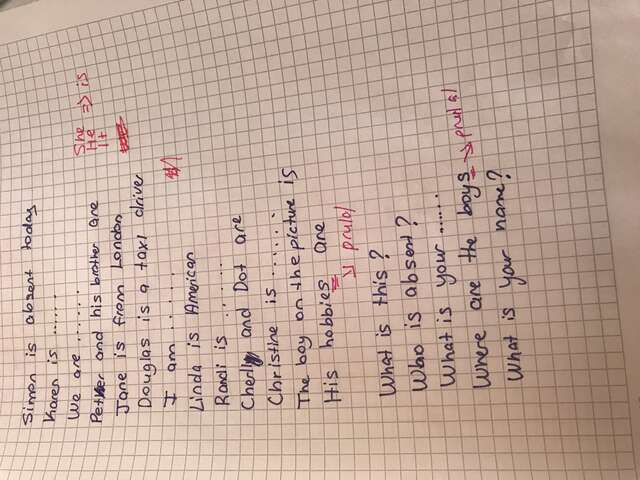 Simon is absent today
Karen is ......
We are ......
Pether and his brother are
She
He => is
It
Jane is from London
Douglas is a taxi driver
I am .....
Linda is American
Randi is .....
Cherlly and Dot are
Christine is ......
The boy on the picture is
His hobbies are
↘ prulal
What is this?
Who is absent?
What is your ......
Where are the boys ↘ prulal
What is your name?